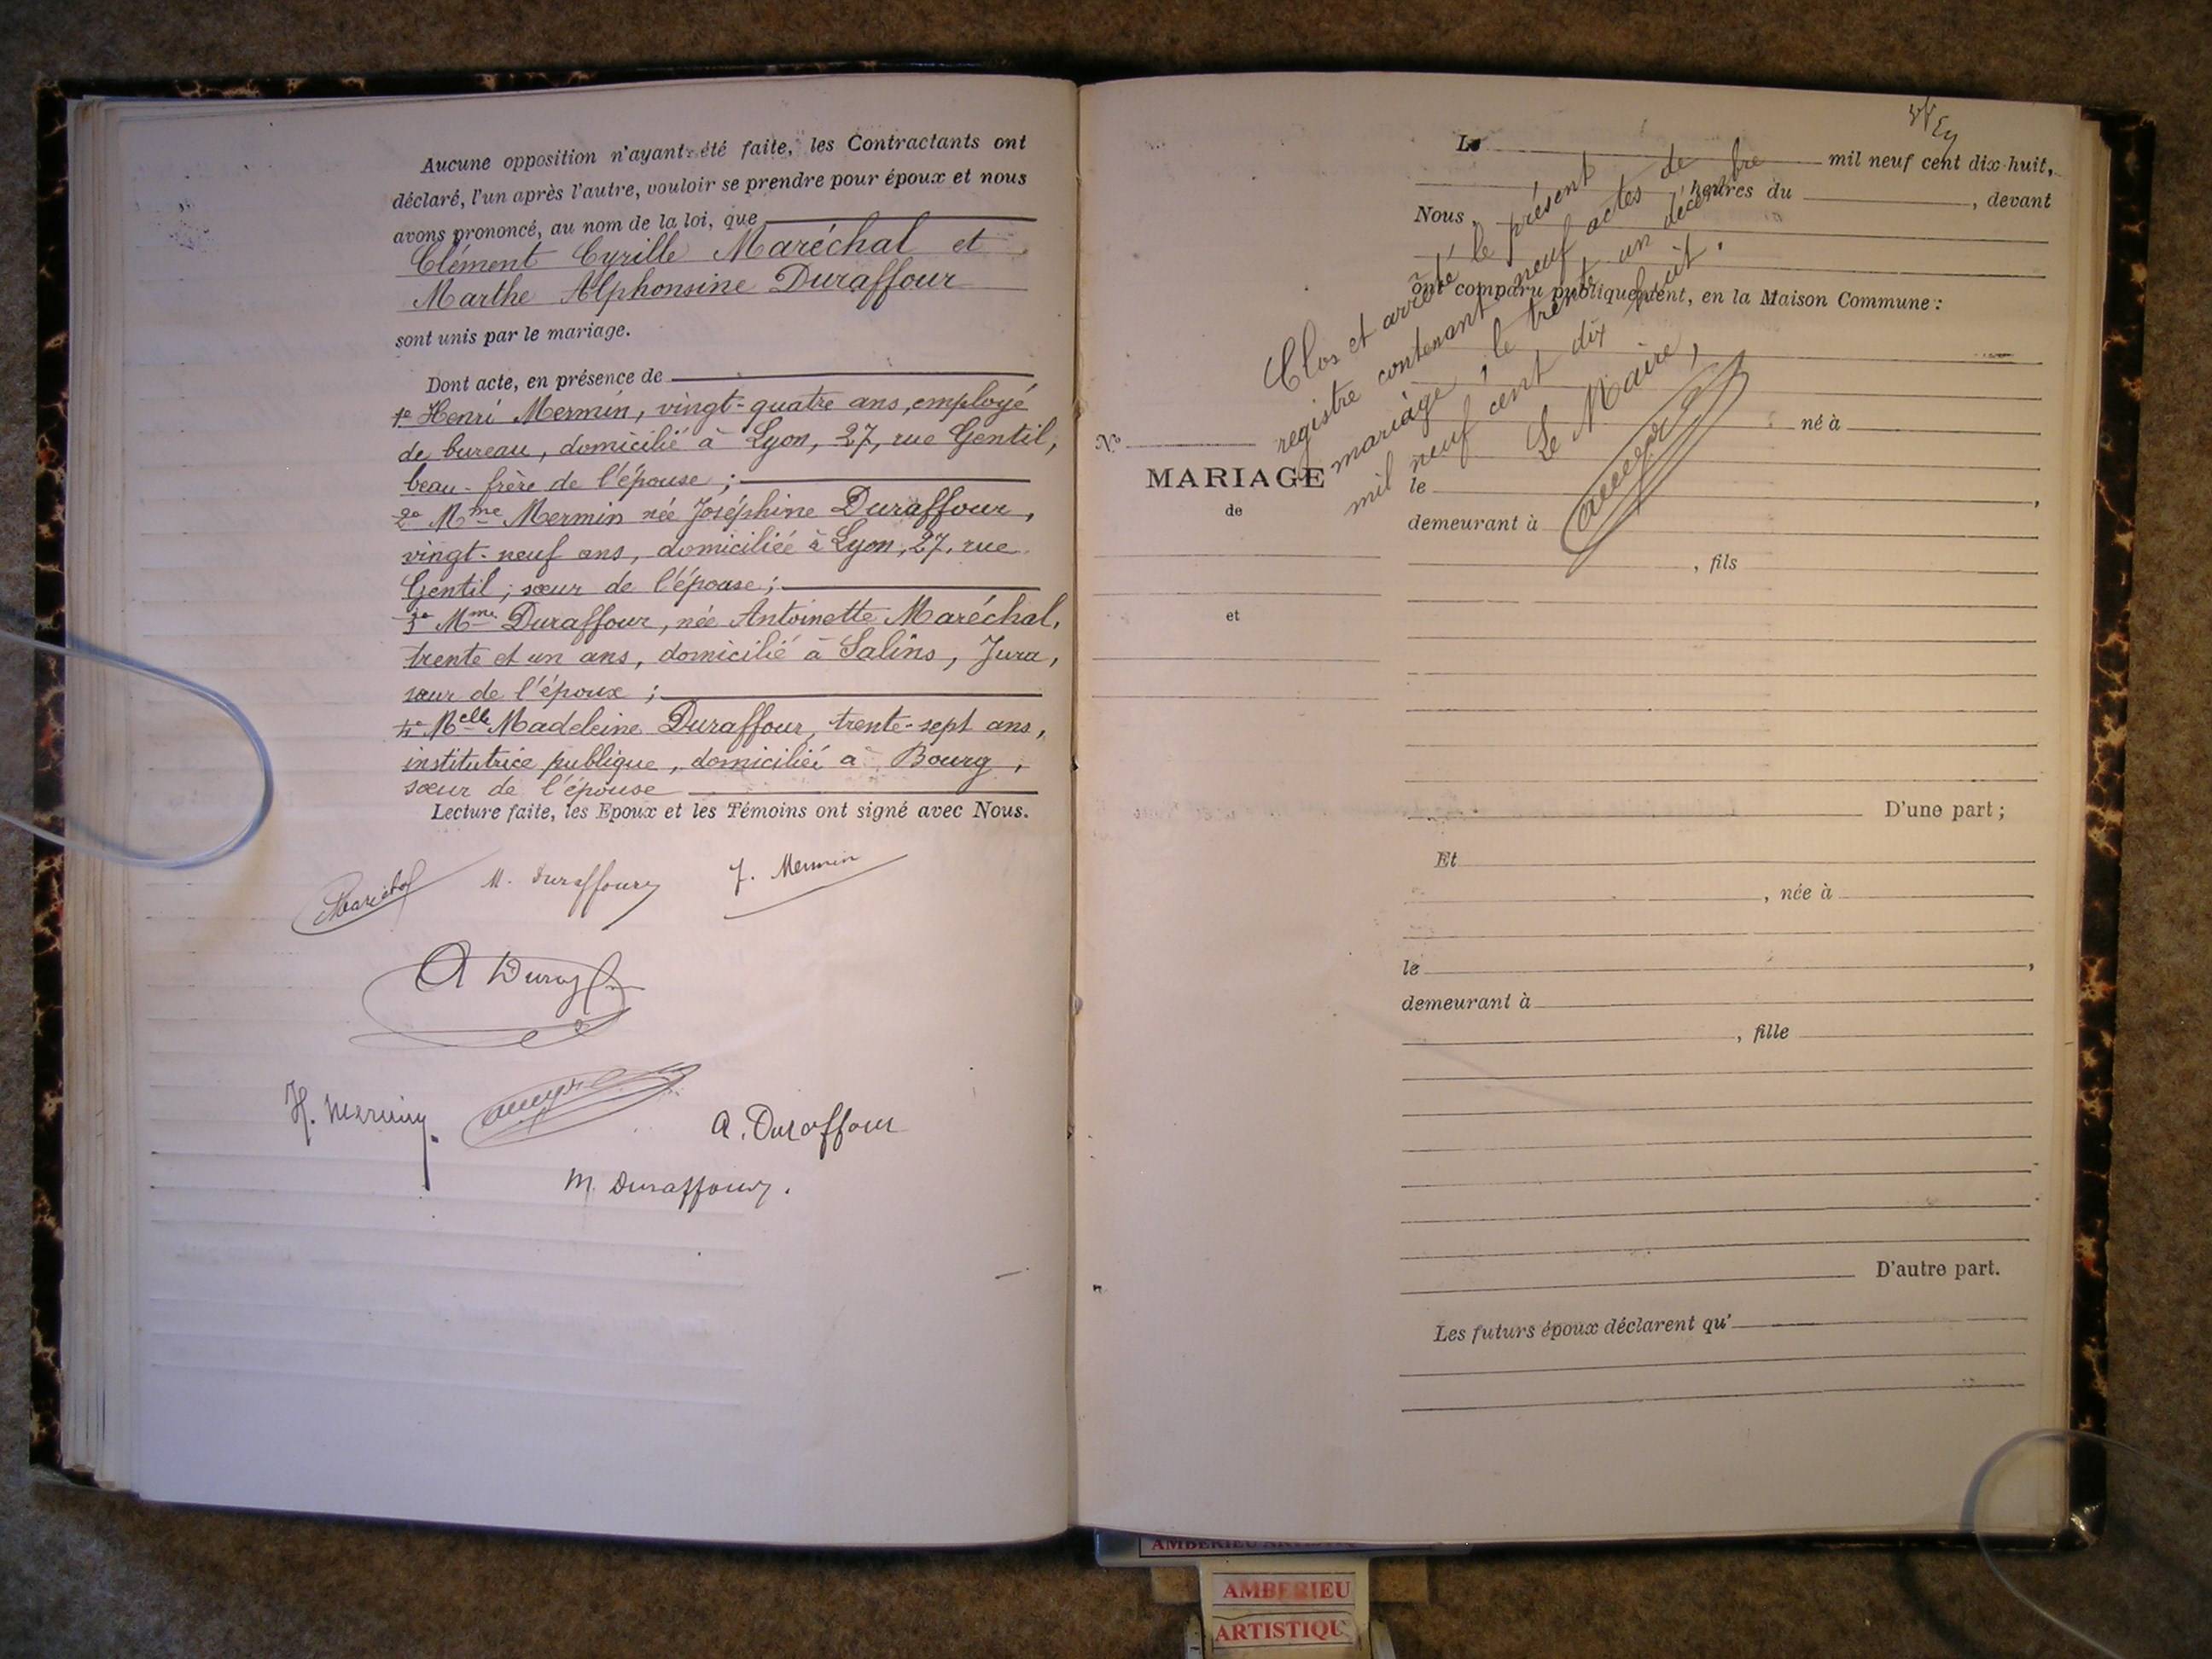 Aucune opposition n'ayant été faite, les Contractants ont
déclaré, l'un après l'autre, vouloir se prendre pour époux et nous
avons prononcé, au nom de la loi, que
Clément Cyrille Maréchal et
Marthe Alphonsine Duraffour
sont unis par le mariage.
Dont acte, en présence de
1º Henri Mermin, vingt-quatre ans, employé
de bureau, domicilié à Lyon, 27, rue Gentil,
beau-frère de l'épouse ;
2º Mme Mermin née Joséphine Duraffour,
vingt-neuf ans, domiciliée à Lyon, 27, rue
Gentil ; sœur de l'épouse ;
3º Mme Duraffour, née Antoinette Maréchal,
trente et un ans, domicilié à Salins, Jura,
sœur de l'époux ;
4º Melle Madeleine Duraffour, trente-sept ans,
institutrice publique, domiciliée à Bourg,
sœur de l'épouse
Lecture faite, les Epoux et les Témoins ont signé avec Nous.
Maréchal M. Duraffour J. Mermin
A Duraf
H. Mermin A. Duraffour
M. Duraffour.
Le mil neuf cent dix-huit,
heures du , devant
Nous
ont comparu publiquement, en la Maison Commune :
Clos et arrêté le présent
registre contenant neuf actes de
mariage, le trente un décembre
mil neuf cent dix huit.
Le Maire,
Nº
MARIAGE
de
et
né à
le
demeurant à
, fils
D'une part ;
Et
, née à
le
demeurant à
, fille
D'autre part.
Les futurs époux déclarent qu'
AMBERIEU
AMBERIEU
ARTISTIQU